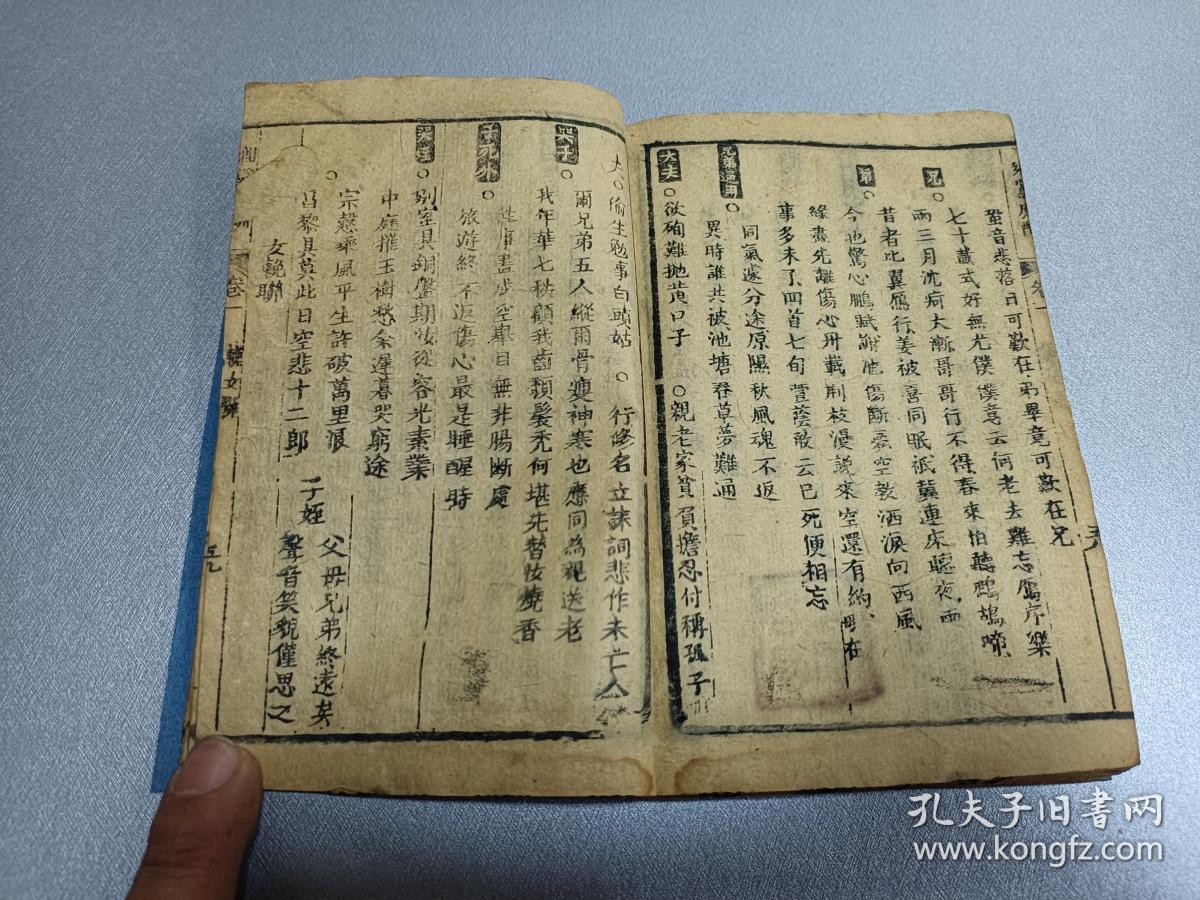 蛩音悲落日可歎在弟畢竟可歎在兄
兄
七十載式好無尤僕僕竟云何老去難忘鴈序樂
兩三月沈疴大漸哥哥行不得春來怕聽鷓鴣啼
昔者比翼鴈行姜被喜同眠祇冀連床聽夜雨
弟
今也驚心鵬賦謝池傷斷夢空教洒淚向西風
緣盡先離傷心卅載荆枝漫說來空還有約
事多未了四首七旬萱蔭敢云已死便相忘
兄弟通用
同氣遽分途原隰秋風魂不返
異時誰共被池塘春草夢難通
大夫
欲殉難拋黄口子
親老家貧負擔忍付稱孤子
偷生勉事白頭姑
行修名立誄詞悲作未亡人
哭子
爾兄弟五人縱爾骨瘦神寒也應同為現送老
我年華七秩顧我齒頹髮禿何堪先替汝燒香
子死外
盡成空舉目無非腸斷處
旅遊終不返傷心最是睡醒時
哭侄
别室具銅盤期汝從容光素業
中庭摧玉樹愁余遲暮哭窮途
宗慤乘風平生許破萬里浪
昌黎具奠此日空悲十二郎
子姪
女輓聯
父母兄弟終遠矣
聲音笑貌僅思之
卷一
輓女聯
五九
孔夫子旧书网
www.kongfz.com